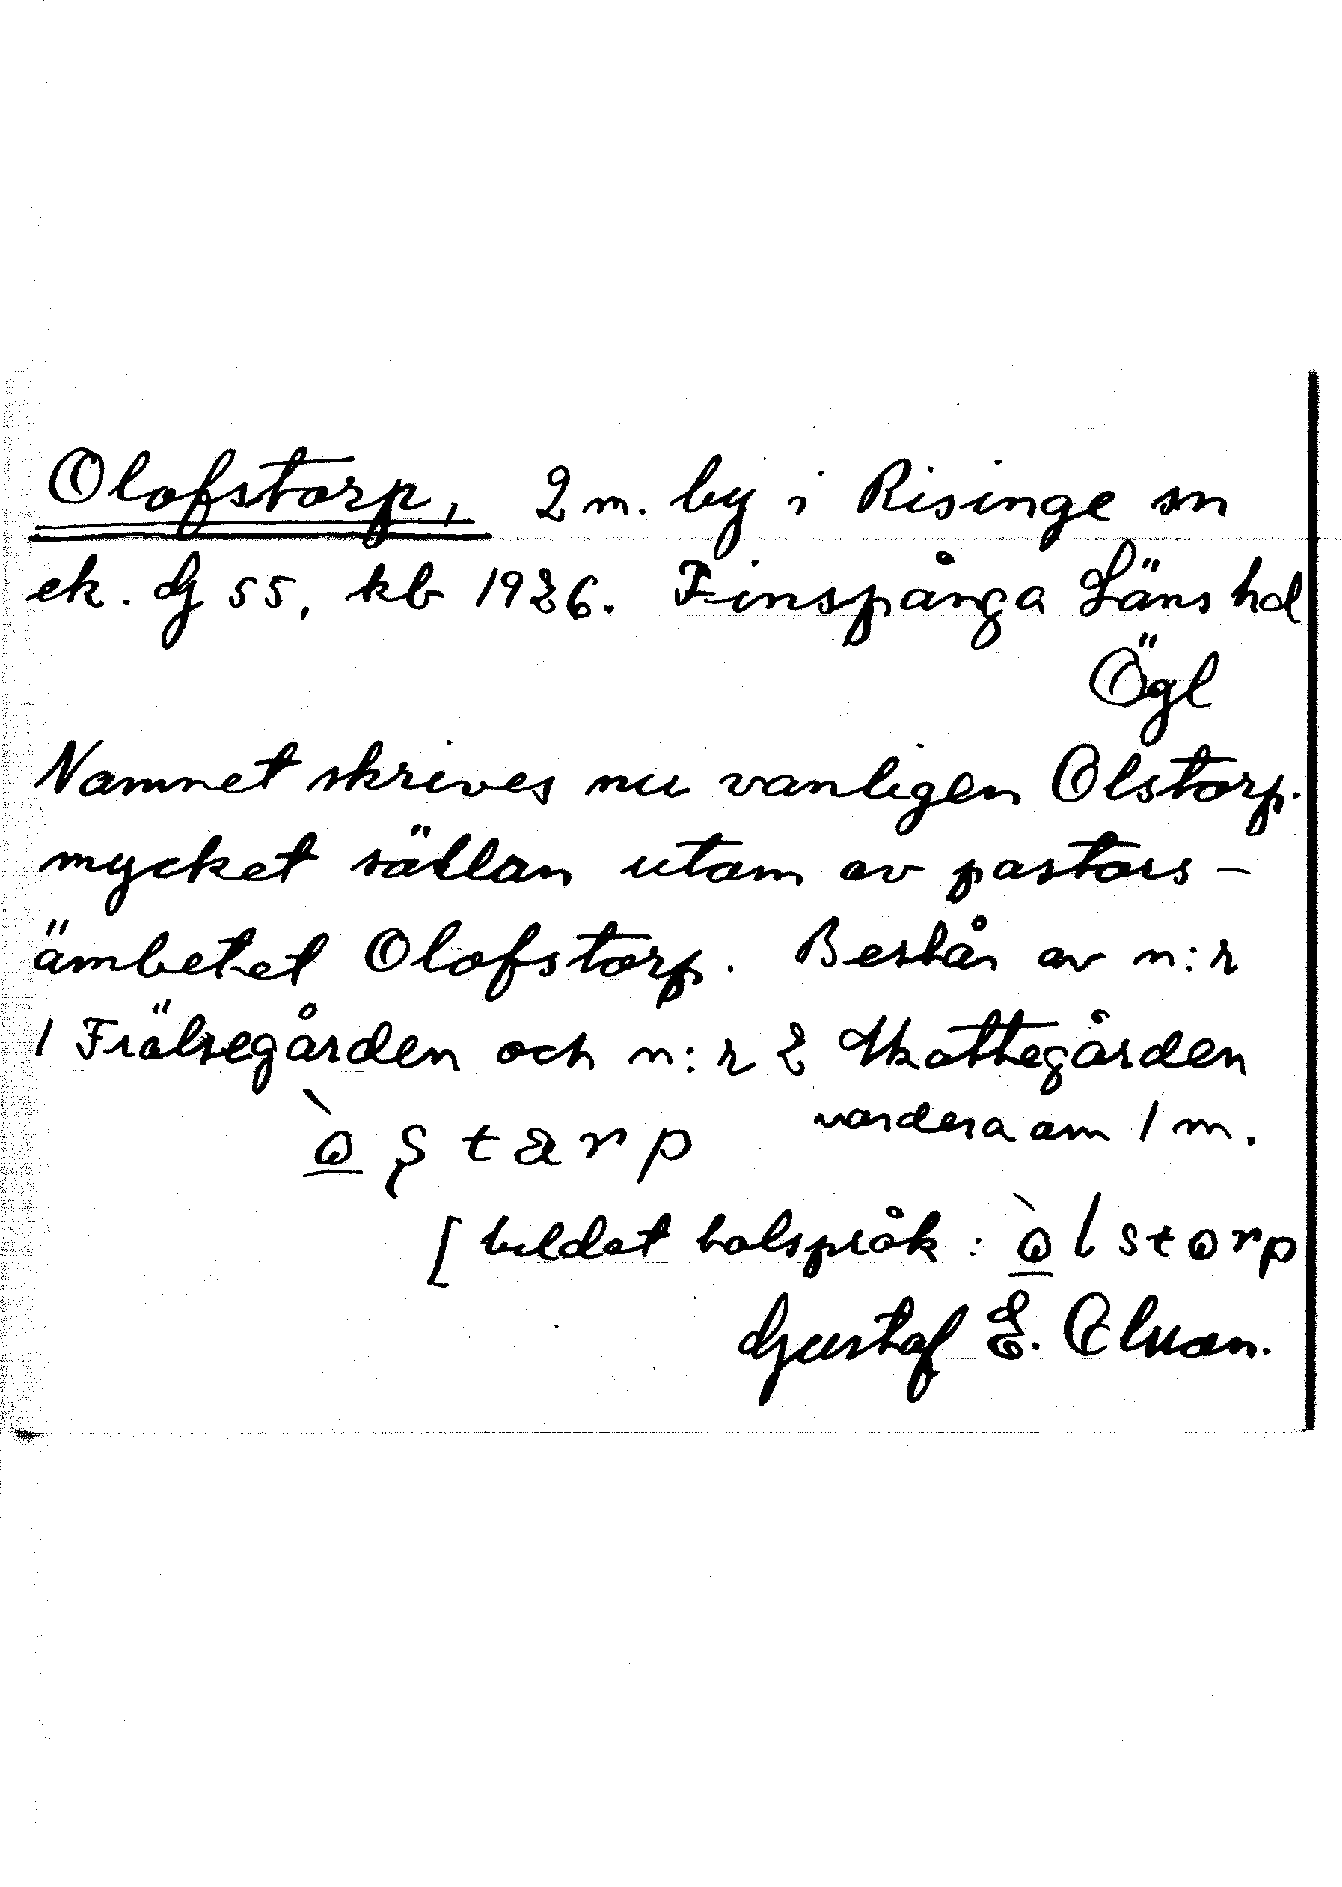 Olofstorp, 2 m. by i Risinge sn
ek. G 55, kb 1926. Finspånga Läns hd
Ögl
Namnet skrives nu vanligen Olstorp.
mycket sällan utom av pastors-
ämbetet Olofstorp. Består av n:r
1 Frälsegården och n:r 2 Skattegården
vardera om 1 m.
[ bildat talspråk : òlstorp
Gustaf E.